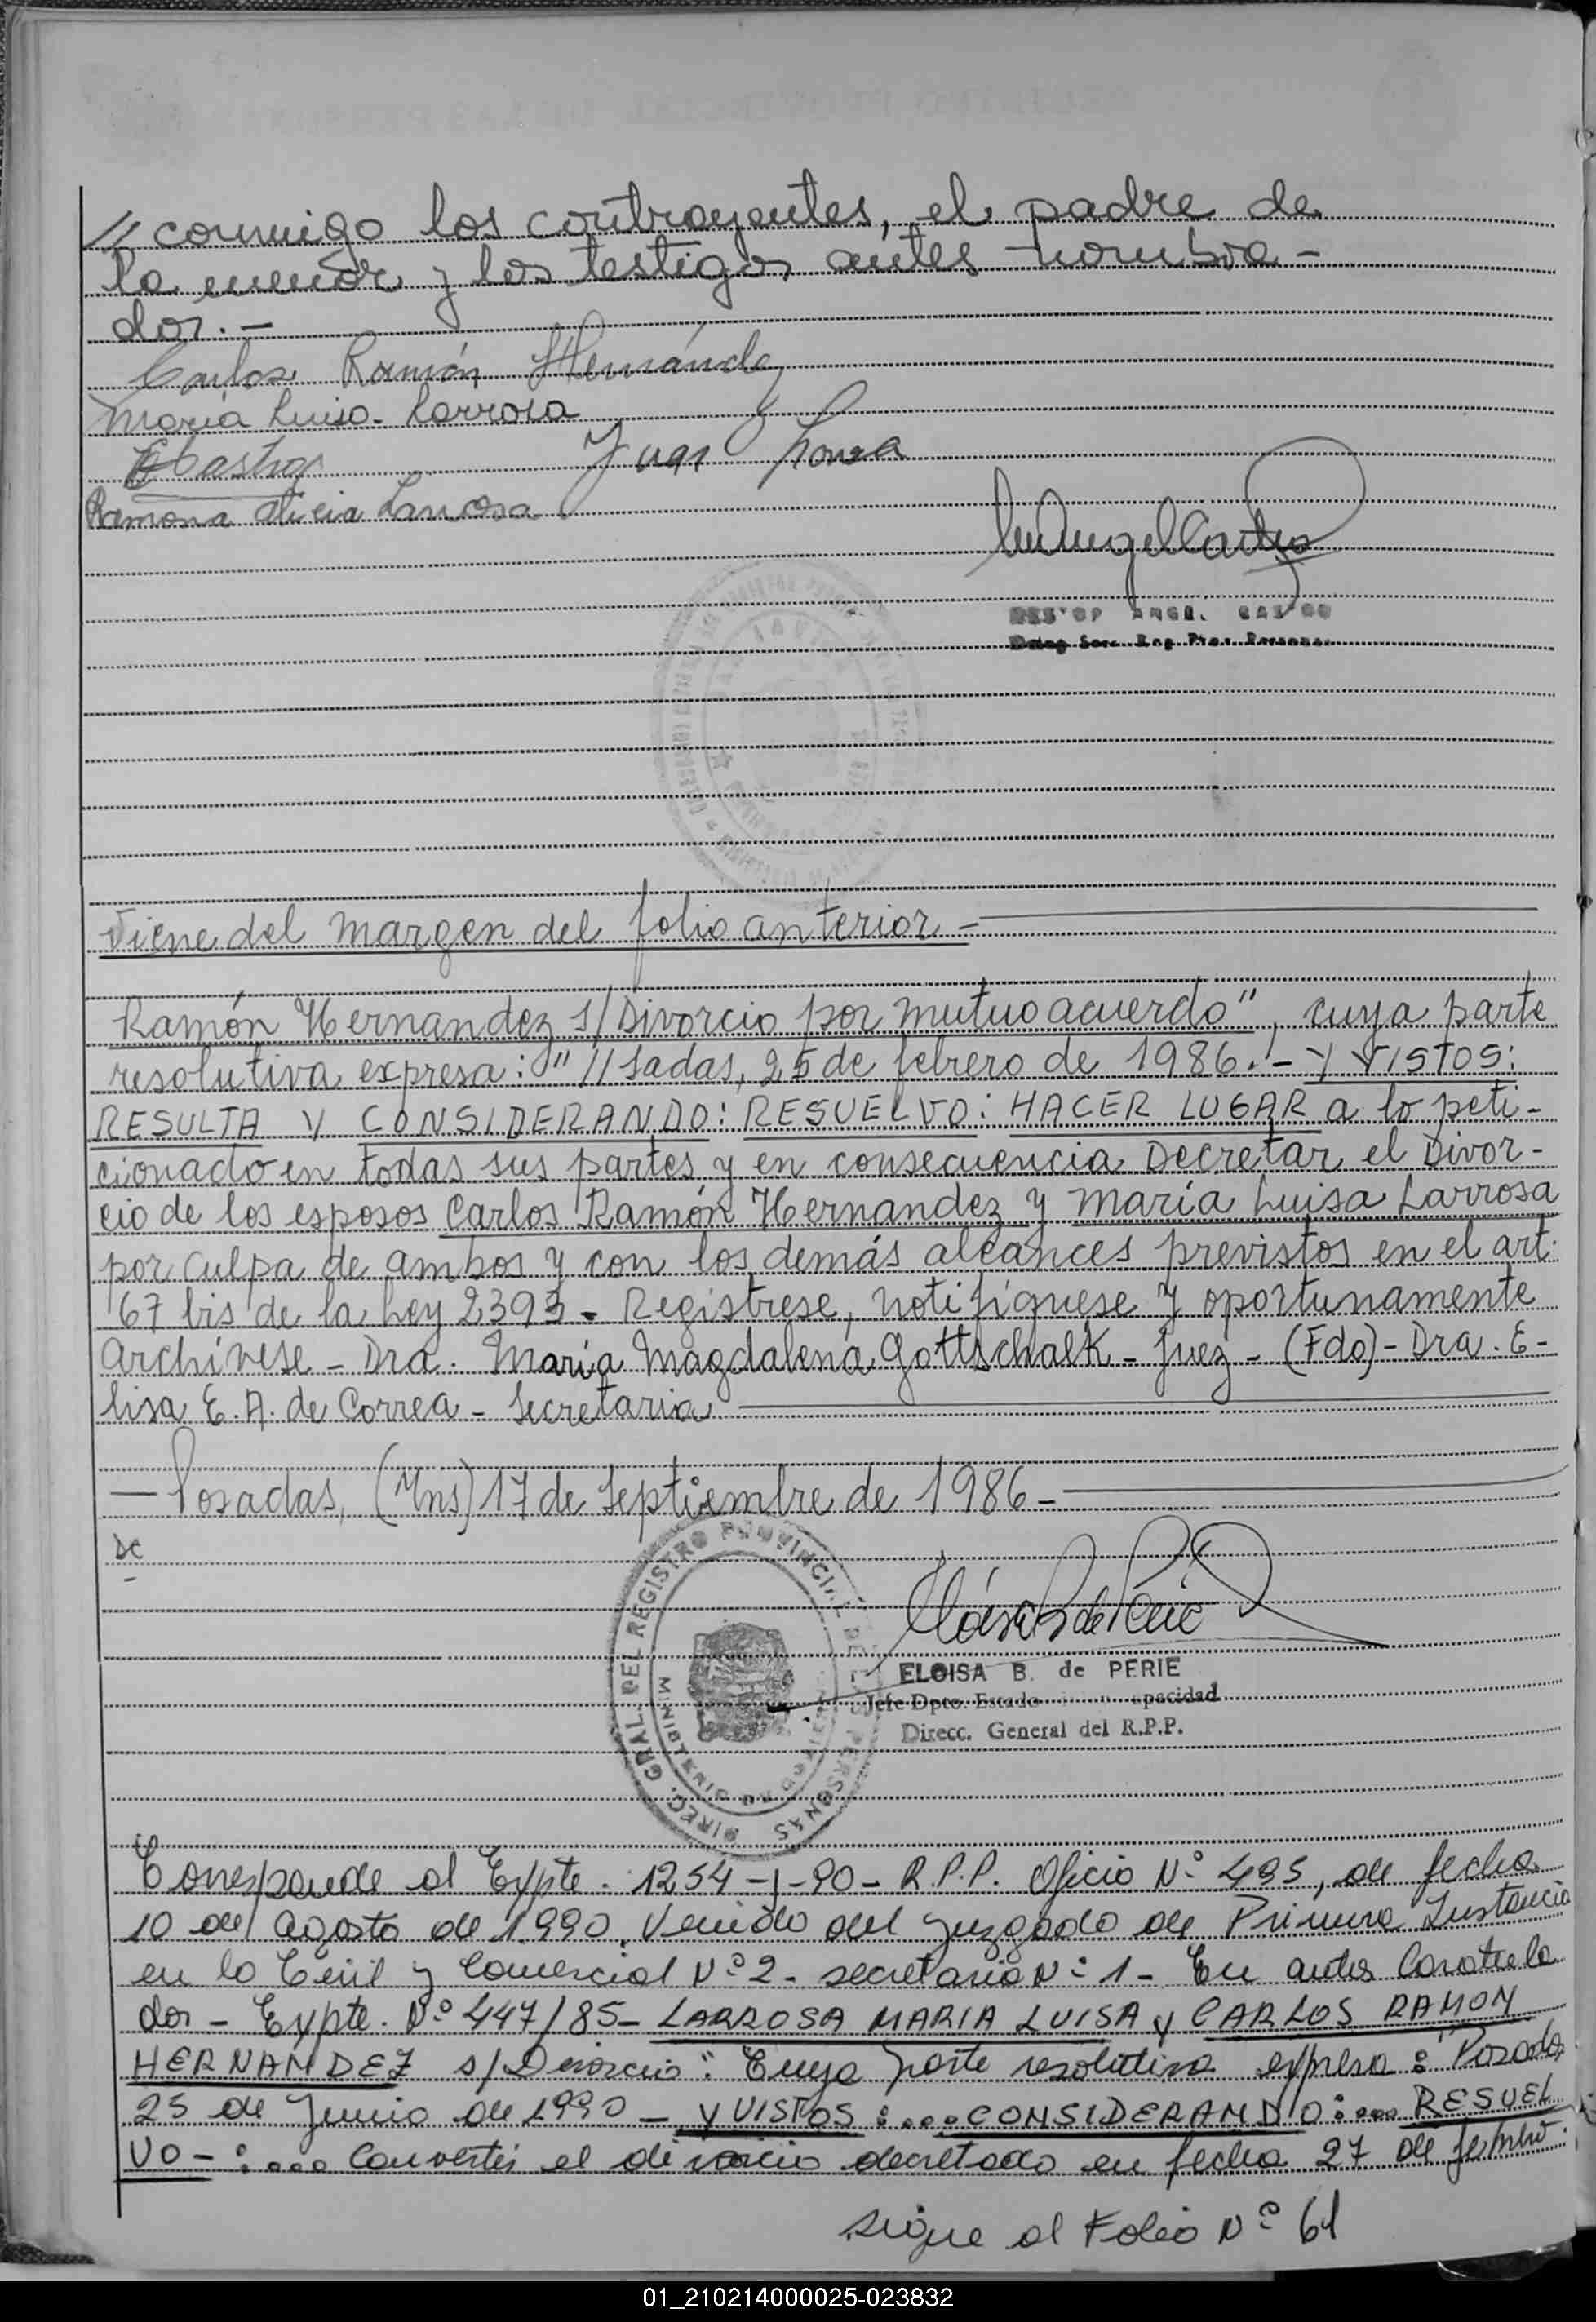 // conmigo los contrayentes, el padre de
la menor y los testigos antes nombra-
dos.-
Carlos Ramón Hernández
María Luisa Larrosa
Castro Juan
Ramona Alicia Larrosa
Viene del margen del folio anterior.-
Ramón Hernandez s/Divorcio por mutuo acuerdo", cuya parte
resolutiva expresa: "//sadas, 25 de febrero de 1986.- Y VISTOS:
RESULTA Y CONSIDERANDO: RESUELVO: HACER LUGAR a lo peti-
cionado en todas sus partes y en consecuencia Decretar el Divor-
cio de los esposos Carlos Ramón Hernandez y María Luisa Larrosa
por culpa de ambos y con los demás alcances previstos en el art.
67 bis de la Ley 2393 - Registrese, notifíquese y oportunamente
Archívese - Dra. María Magdalena Gottschalk - Juez - (Fdo) - Dra. E-
lisa E. A. de Correa - Secretaria
- Posadas, (Mns) 17 de Septiembre de 1986 -
DC
DIREC. GRAL. DEL REGISTRO PROVINCIAL DE LAS PERSONAS
MINISTERIO DE GOBIERNO
ELOISA B. de PERIE
Jefe Dpto. Estado apacidad
Direcc. General del R.P.P.
Corresponde al Expte. 1254-J-90- R.P.P. Oficio N° 495, de fecha
10 de agosto de 1.990, Venido del Juzgado de Primera Instancia
en lo Civil y Comercial N° 2 - secretaria N° 1 - En autos Caratula
dos - Expte. N° 447/85 - LARROSA MARIA LUISA y CARLOS RAMON
HERNANDEZ s/Divorcio": Cuya parte resolutiva expresa: "Posadas
25 de Junio de 1990 - Y VISTOS:...CONSIDERANDO:... RESUEL
VO-:... Convertir el divorcio decretado en fecha 27 de febrero
sigue al Folio N° 61
01_210214000025-023832